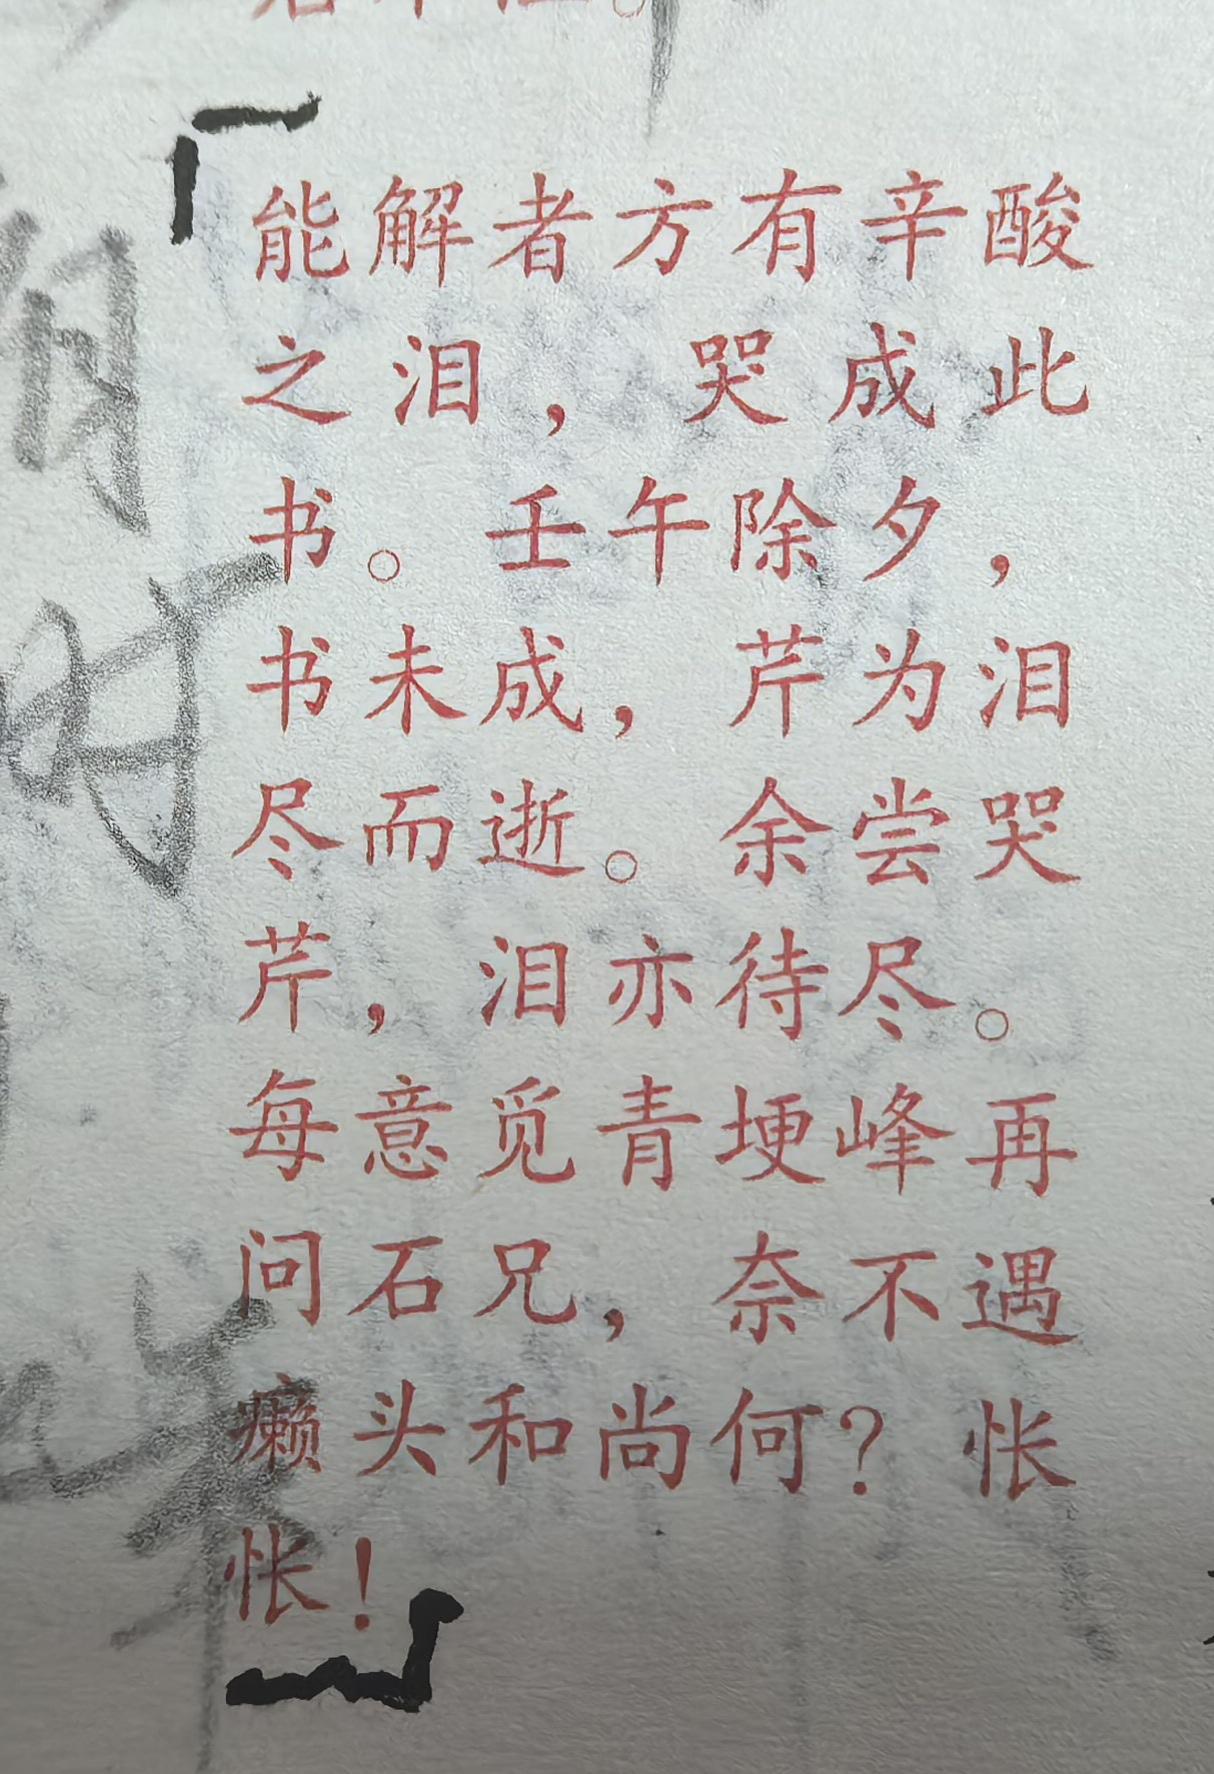 能解者方有辛酸
之泪，哭成此
书。壬午除夕，
书未成，芹为泪
尽而逝。余尝哭
芹，泪亦待尽。
每意觅青埂峰再
问石兄，奈不遇
癞头和尚何？怅
怅！